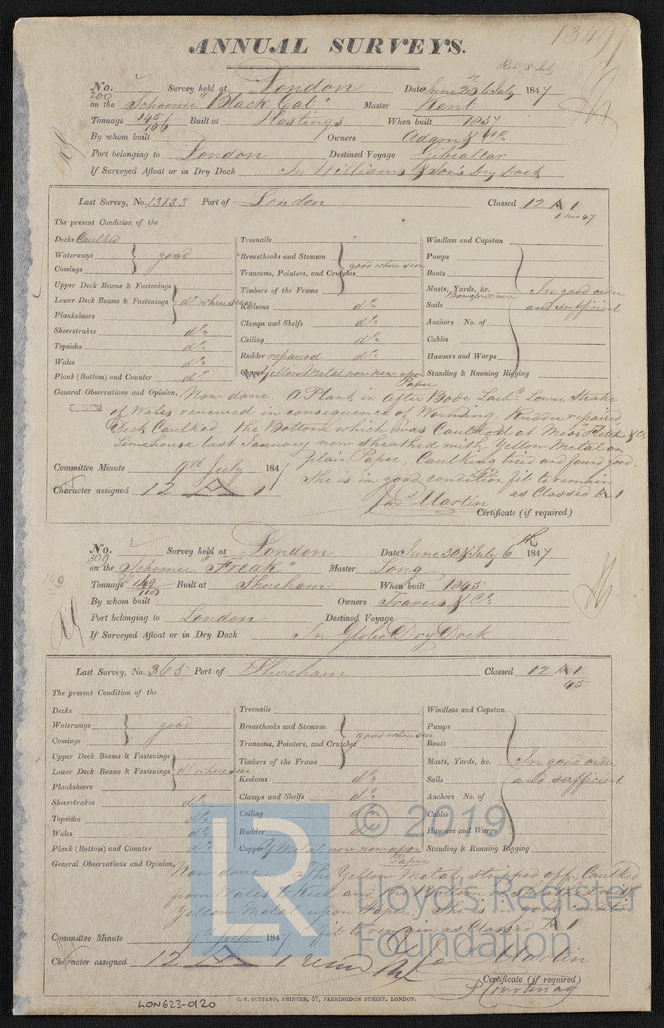 1349
ANNUAL SURVEYS.
Rec 8 July
No. 200 Survey held at London Date June 20 & 6 July 1847
on the Schooner "Black Cat" Master Kent
Tonnage 145/106 Built at Hastings When built 1837
By whom built Owners Adam & Co.
Port belonging to London Destined Voyage Gibraltar
If Surveyed Afloat or in Dry Dock In Williams & Sons Dry Dock
Last Survey, No. 13133 Port of London Classed 12 A 1
The present Condition of the
Decks Caulked
Waterways good
Comings
Upper Deck Beams & Fastenings
Lower Deck Beams & Fastenings do where seen
Planksheers
Sheerstrakes do
Topsides do
Wales do
Plank (Bottom) and Counter do
Treenails
Breasthooks and Stemson good where seen
Transoms, Pointers, and Crutches
Timbers of the Frame
Keelsons do
Clamps and Shelfs do
Ceiling do
Rudder repaired do
Copper Yellow Metal now new upon Paper
Windlass and Capstan
Pumps
Boats
Masts, Yards, &c. In good order
Bowsprit new
Sails and sufficient
Anchors No. of
Cables
Hawsers and Warps
Standing & Running Rigging
General Observations and Opinion, Now done. A Plank in After Bode Larbd Lower Strake
of Wales renewed in consequence of Wounding. Rudder repaired
Deck Caulked, the Bottom which was Caulked at Messrs Fletcher & Co
Limehouse last January now sheathed with Yellow Metal on
plain Paper, Caulking tried and found good.
She is in good condition fit to remain
as Classed A 1
Committee Minute 9th July 1847
Character assigned 12 A 1
Jas Martin
Certificate (if required)
No. 300 Survey held at London Date June 30 & July 6th 1847
on the Schooner "Freak" Master Long
Tonnage 149 Built at Shoreham When built 1845
By whom built Owners Travers & Co.
Port belonging to London Destined Voyage
If Surveyed Afloat or in Dry Dock In Globe Dry Dock
Last Survey, No. 365 Port of Shoreham Classed 12 A 1
45
The present Condition of the
Decks
Waterways good
Comings
Upper Deck Beams & Fastenings
Lower Deck Beams & Fastenings do where seen
Planksheers
Sheerstrakes do
Topsides do
Wales do
Plank (Bottom) and Counter do
Treenails
Breasthooks and Stemson good where seen
Transoms, Pointers, and Crutches
Timbers of the Frame
Keelsons do
Clamps and Shelfs do
Ceiling do
Rudder do
Copper Y Metal now new upon Paper
Windlass and Capstan
Pumps
Boats
Masts, Yards, &c. In good order
Sails and sufficient
Anchors No. of
Cables
Hawsers and Warps
Standing & Running Rigging
General Observations and Opinion, Now done. The Yellow Metal stripped off, Caulked
from Wales to Keel and Bottom sheathed with
Yellow Metal upon Paper. She is in good condition
fit to remain as Classed A 1
Committee Minute 9th July 1847
Character assigned 12 A 1
Jas Martin
Certificate (if required)
Courtenay
C. F. SEYFANG, PRINTER, 57, FARRINGDON STREET, LONDON.
LON623-0120
LR
© 2019
Lloyd's Register
Foundation